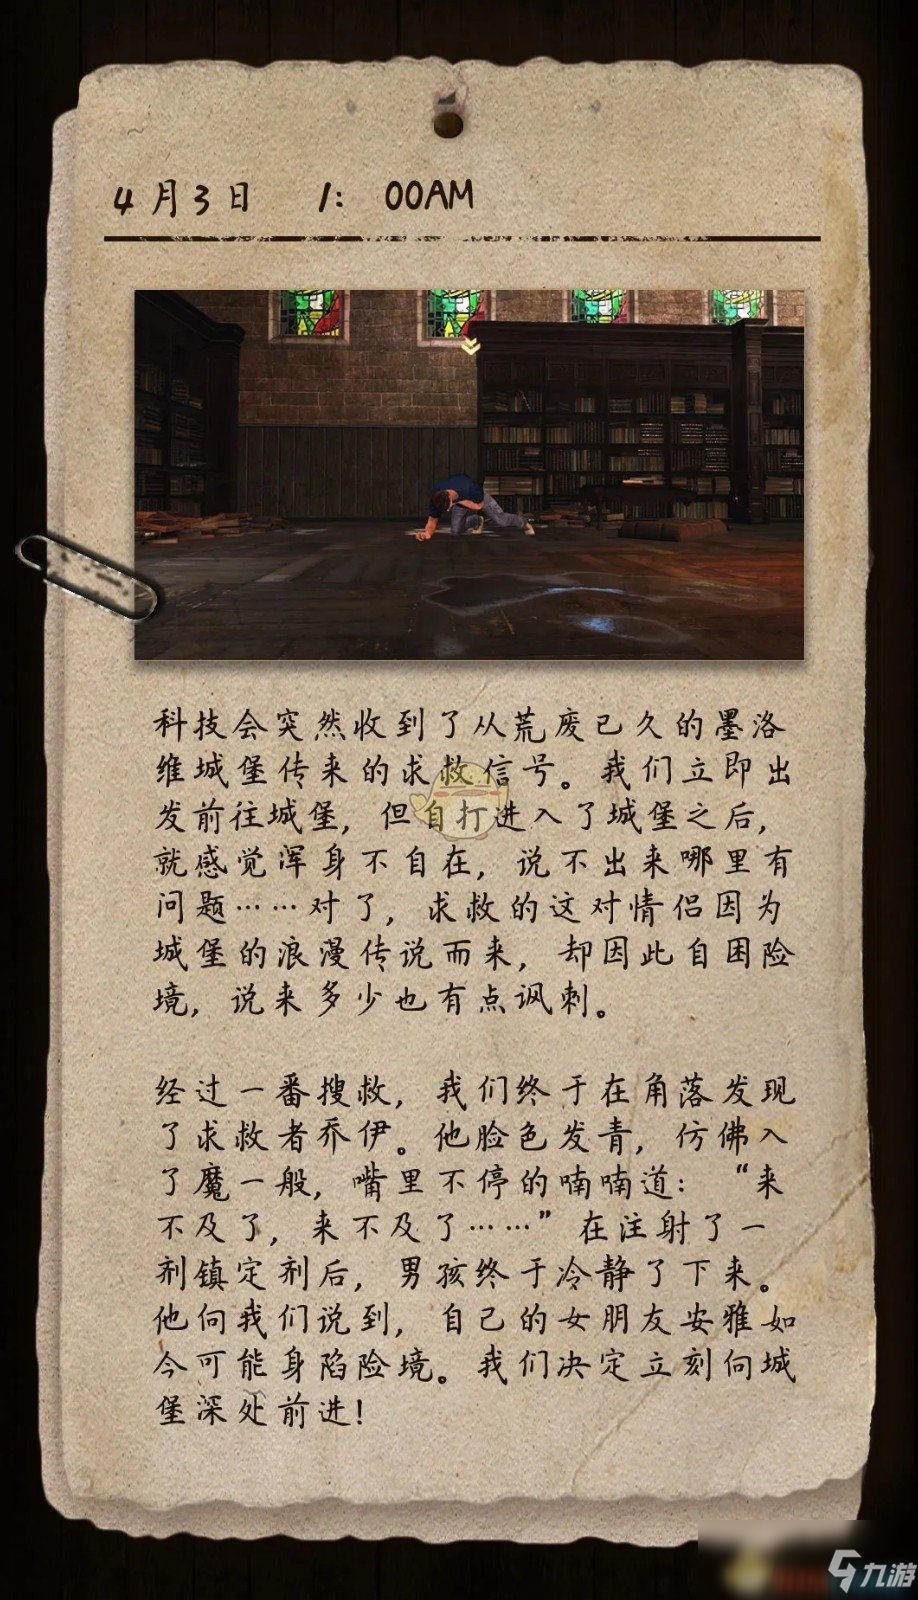 4月3日 1：00AM
科技会突然收到了从荒废已久的墨洛
维城堡传来的求救信号。我们立即出
发前往城堡，但自打进入了城堡之后，
就感觉浑身不自在，说不出来哪里有
问题……对了，求救的这对情侣因为
城堡的浪漫传说而来，却因此自困险
境，说来多少也有点讽刺。
经过一番搜救，我们终于在角落发现
了求救者乔伊。他脸色发青，仿佛入
了魔一般，嘴里不停的喃喃道：“来
不及了，来不及了……”在注射了一
剂镇定剂后，男孩终于冷静了下来。
他向我们说到，自己的女朋友安雅如
今可能身陷险境。我们决定立刻向城
堡深处前进！
九游